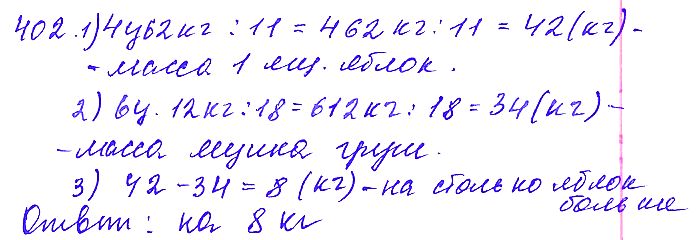 402. 1) 4ц62кг : 11 = 462 кг : 11 = 42 (кг) -
- масса 1 ящ. яблок.
2) 6ц. 12кг : 18 = 612кг : 18 = 34 (кг) -
- масса ящика груш.
3) 42 - 34 = 8 (кг) - на столько яблок
больше
Ответ: на 8 кг